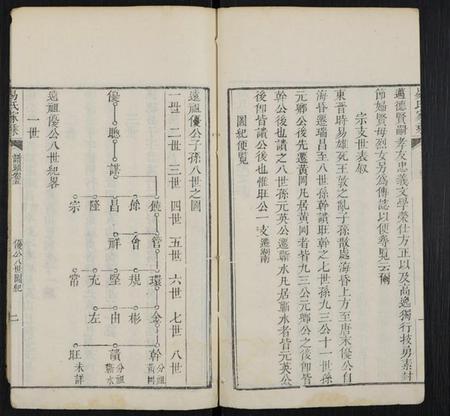 邁德賢嗣孝友忠義文學榮仕方正以及高逸獨行技勇素封
節婦賢母烈女另為傳誌以便尋覽云爾
宗支世表敘
東晉時易雄死王敦之亂子孫散處海昏上方至唐末優公自
海昏遷瑞昌至八世孫幹讀旺幹之七世孫九三公十一世孫
元鄉公後先遷黃岡凡居黃岡者皆九三公元鄉公之後即皆
幹公後也讀之八世孫元英公遷蘄水凡居蘄水者皆元英公
後即皆讀公後也惟旺公一支遷湖南
圖紀便覽
遠祖優公子孫八世之圖
一世 二世 三世 四世 五世 六世 七世 八世
優 聰 謀
餘 管 環 金 幹 分祖黃岡
餘 會 規 彬
昌 祥 堅 由 讀 分祖蘄水
隆 充 左
宗 常 旺 未詳
遠祖優公八世紀畧
一世
易氏家乘
譜頭卷
優公八世圖紀
二